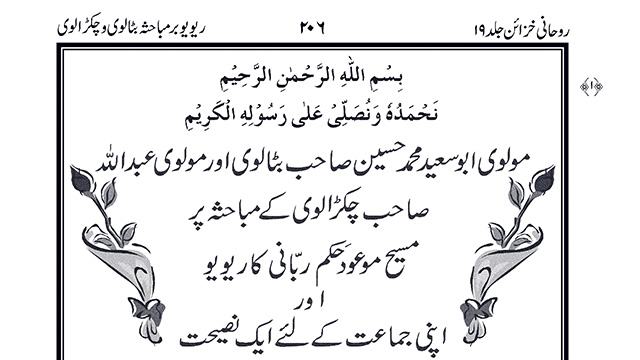 روحانی خزائن جلد ۱۹ ۲۰۶ ریویو بر مباحثہ بٹالوی و چکڑالوی
﴿۱﴾
بِسْمِ اللّٰهِ الرَّحْمٰنِ الرَّحِيْمِ
نَحْمَدُهٗ وَنُصَلِّىْ عَلٰى رَسُوْلِهِ الْكَرِيْمِ
مولوی ابوسعید محمد حسین صاحب بٹالوی اور مولوی عبداللہ
صاحب چکڑالوی کے مباحثہ پر
مسیح موعود حَکم ربّانی کا ریویو
اور
اپنی جماعت کے لئے ایک نصیحت